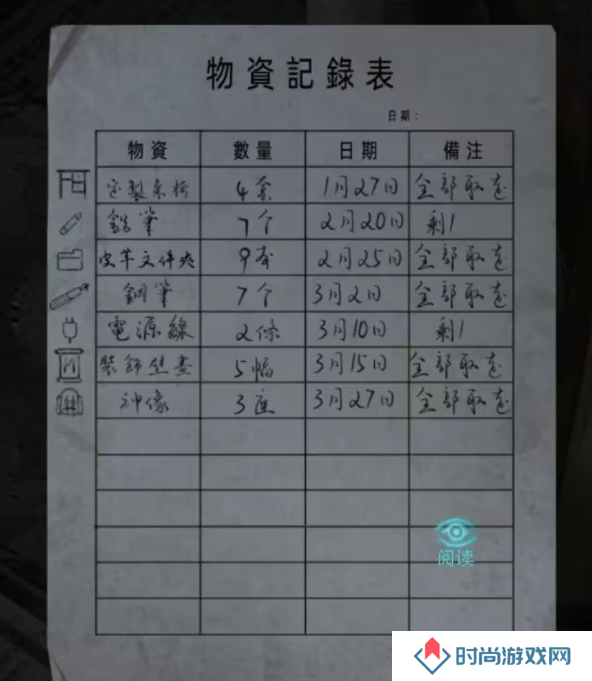 物資記錄表
日期：
物資 數量 日期 備注
定製桌椅 4套 1月27日 全部取走
鉛筆 7个 2月20日 剩1
皮革文件夾 9本 2月25日 全部取走
鋼筆 7个 3月2日 全部取走
電源線 2條 3月10日 剩1
裝飾壁畫 5幅 3月15日 全部取走
神像 3座 3月27日 全部取走
阅读
时尚游戏网